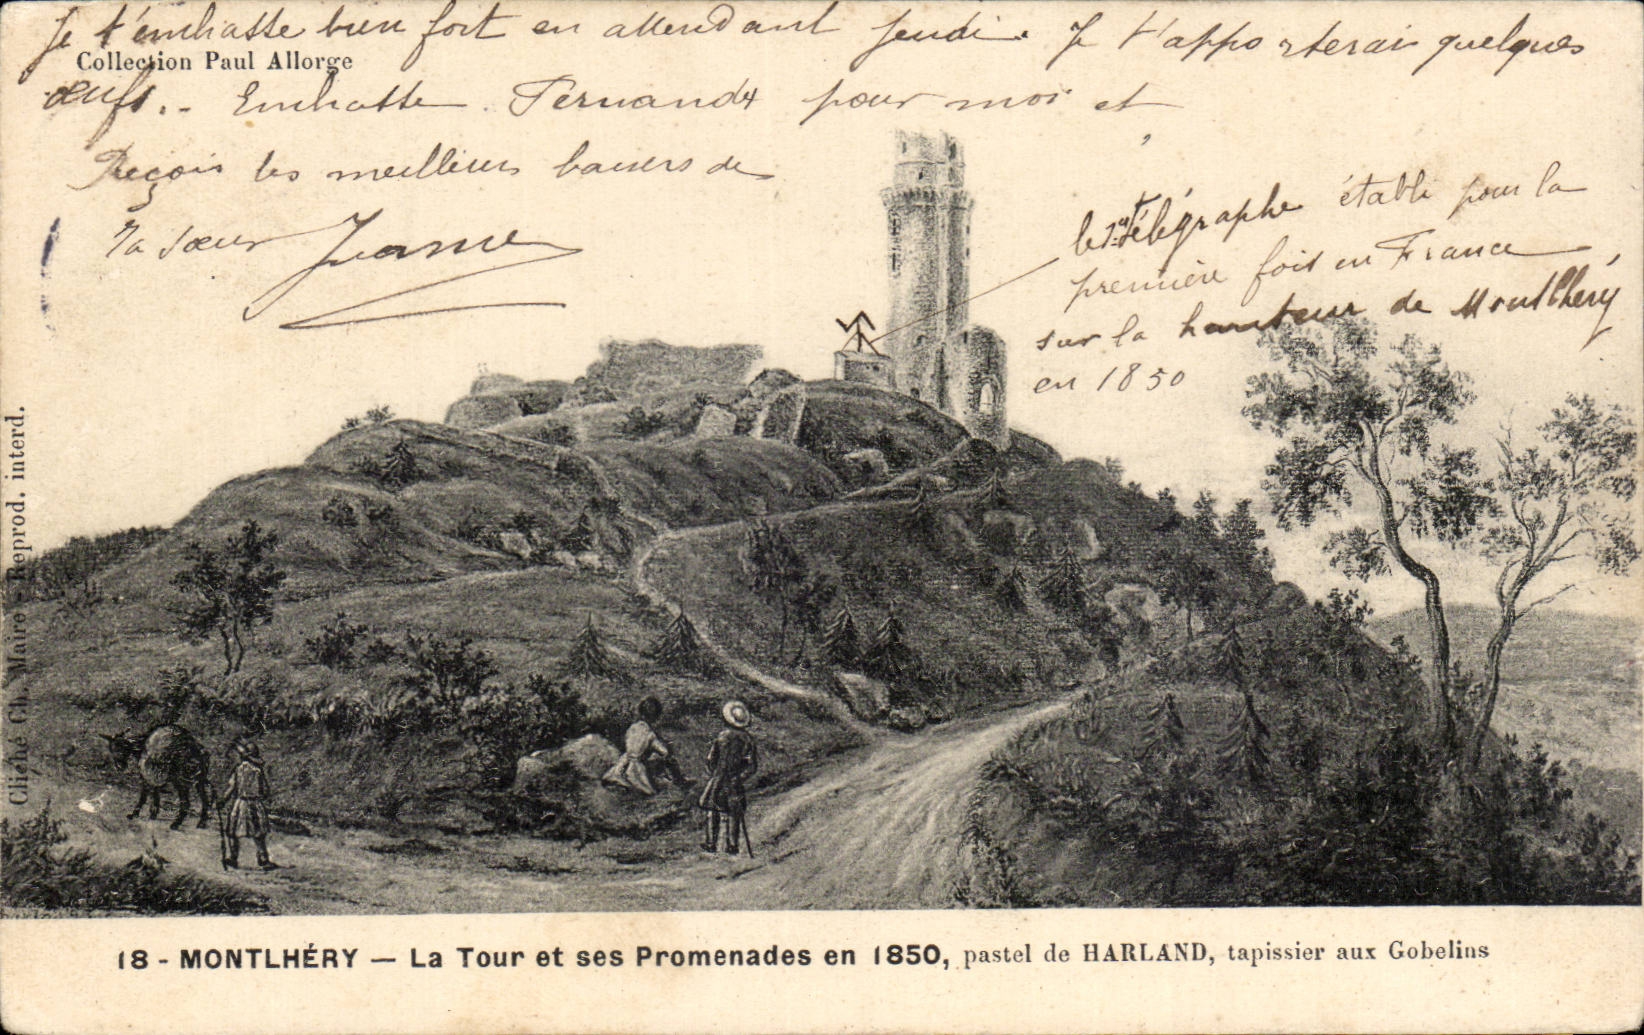 Je t'embrasse bien fort en attendant jeudi. Je t'apporterai quelques
Collection Paul Allorge
œufs. - Embrasse Fernande pour moi et
Reçois les meilleurs baisers de
Ta sœur Jeanne
le 1er télégraphe établi pour la
première fois en France
sur la hauteur de Montlhéry
en 1850
Cliché Ch. Maire - Reprod. interd.
18 - MONTLHÉRY — La Tour et ses Promenades en 1850, pastel de HARLAND, tapissier aux Gobelins